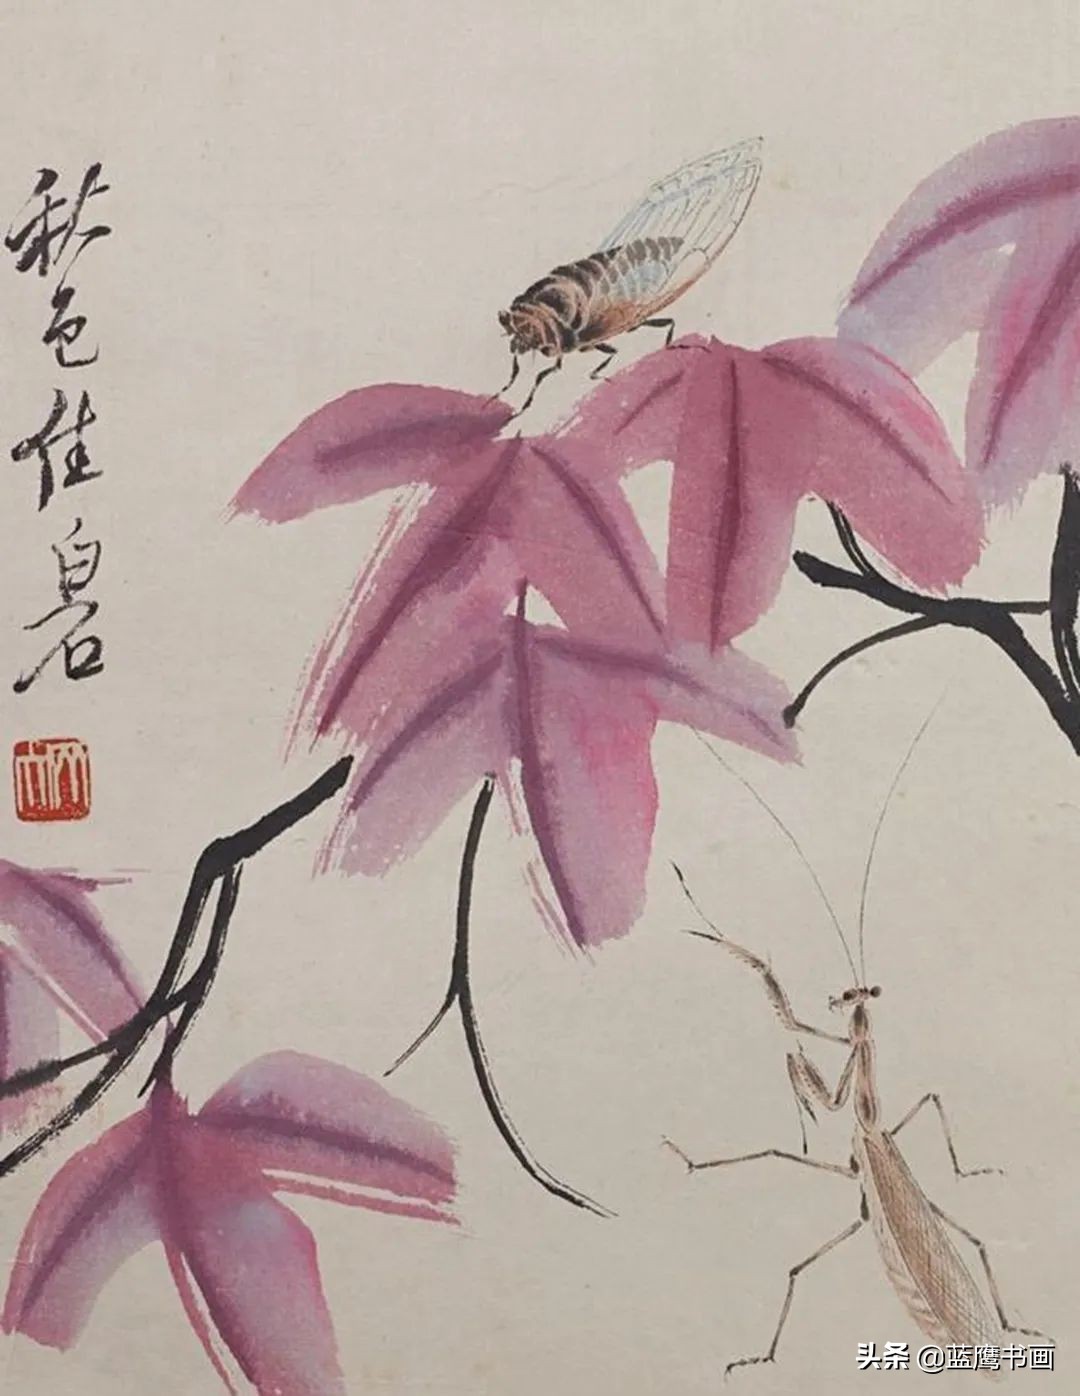 秋色佳白石
头条 @蓝鹰书画